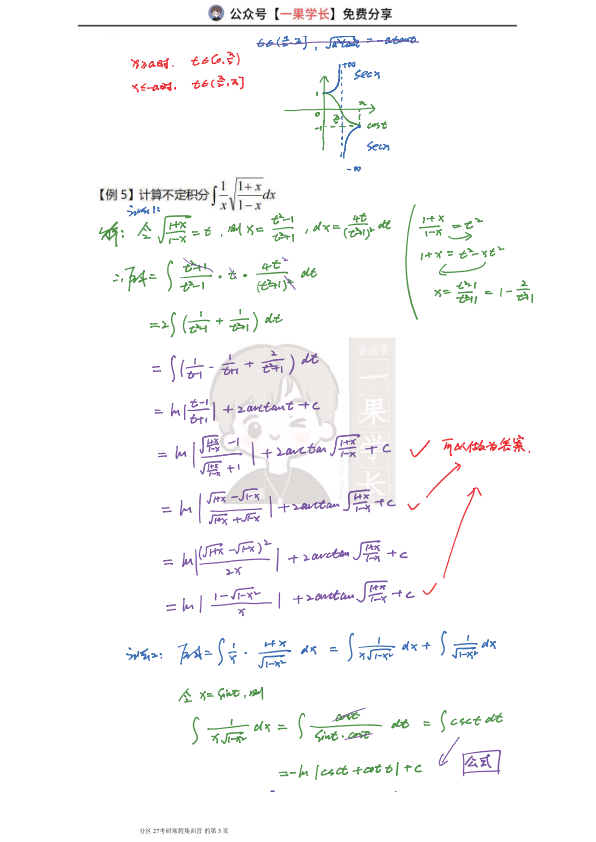 公众号【一果学长】免费分享
t∈(π/2, π], √(a²tan²t) = -atant
x≥a时, t∈[0, π/2)
x≤-a时, t∈(π/2, π]
+∞
secx
1
0
π/2
π
-1
cost
secx
-∞
【例 5】计算不定积分∫ 1/x √((1+x)/(1-x)) dx
法1:
解: 令 √((1+x)/(1-x)) = t, 则 x = (t²-1)/(t²+1), dx = 4t/(t²+1)² dt
(1+x)/(1-x) = t²
1+x = t²-xt²
x = (t²-1)/(t²+1) = 1 - 2/(t²+1)
∴ 原式 = ∫ (t²+1)/(t²-1) · t · 4t/(t²+1)² dt
= 2∫ (1/(t²-1) + 1/(t²+1)) dt
= ∫ (1/(t-1) - 1/(t+1) + 2/(t²+1)) dt
= ln|(t-1)/(t+1)| + 2arctant + c
= ln|(√((1+x)/(1-x)) - 1)/(√((1+x)/(1-x)) + 1)| + 2arctan√((1+x)/(1-x)) + c ✓ 可以做为答案.
= ln|(√(1+x) - √(1-x))/(√(1+x) + √(1-x))| + 2arctan√((1+x)/(1-x)) + c ✓
= ln|(√(1+x) - √(1-x))²/2x| + 2arctan√((1+x)/(1-x)) + c
= ln|(1-√(1-x²))/x| + 2arctan√((1+x)/(1-x)) + c ✓
法2: 原式 = ∫ 1/x · (1+x)/√(1-x²) dx = ∫ 1/(x√(1-x²)) dx + ∫ 1/√(1-x²) dx
令 x = sint, 则
∫ 1/(x√(1-x²)) dx = ∫ cost/(sint·cost) dt = ∫ csct dt
= -ln|csct + cott| + c
公式
公众号
一果学长
分区 27考研寒假集训营 的第 3 页